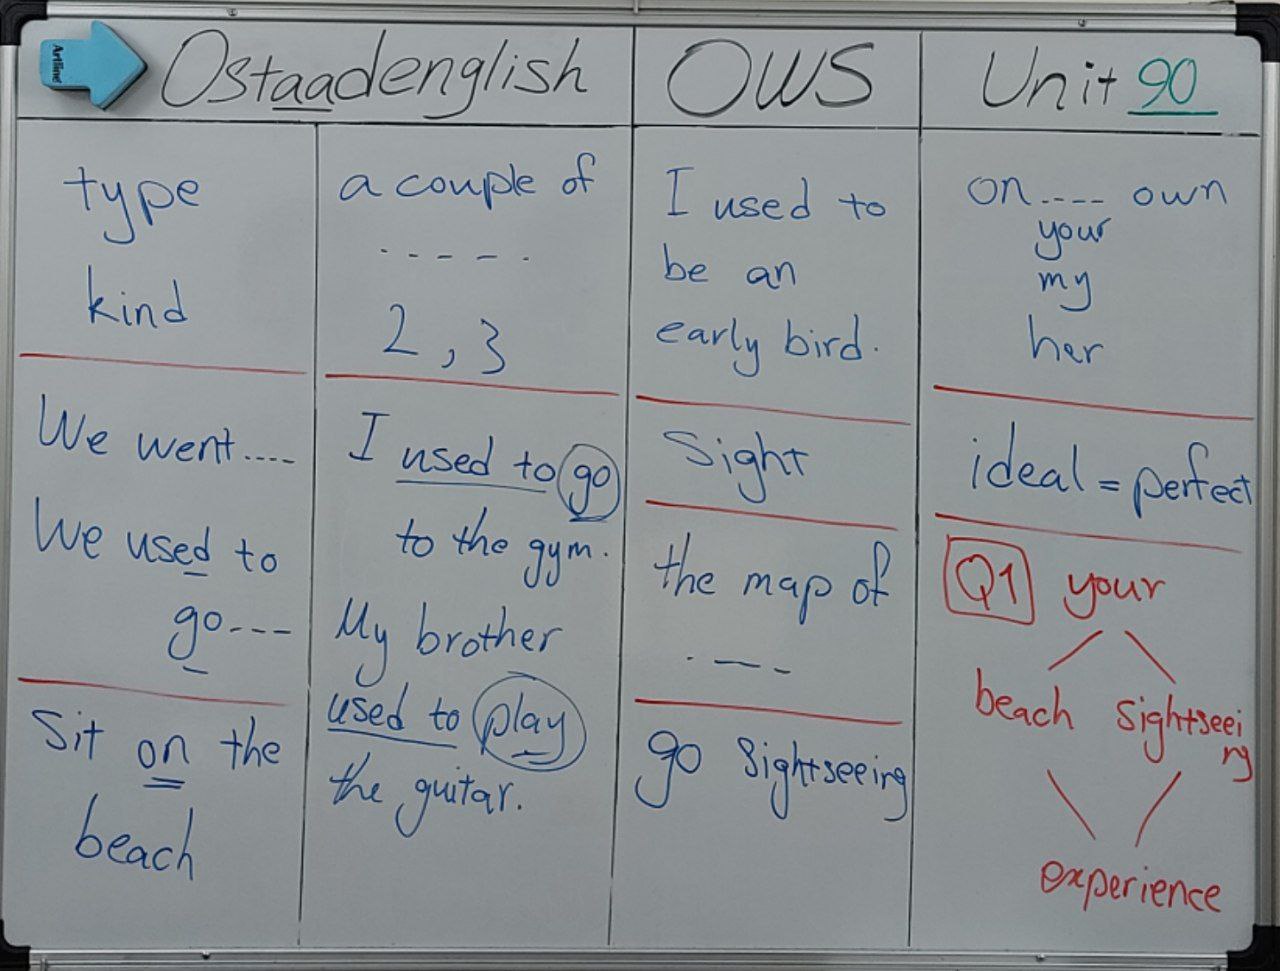 Artline
Ostaadenglish
OWS
Unit 90
type
kind
We went....
We used to
go---
Sit on the
beach
a couple of
-----
2, 3
I used to go
to the gym.
My brother
used to play
the guitar.
I used to
be an
early bird.
Sight
the map of
----
go Sightseeing
on .... own
your
my
her
ideal = perfect
Q1 your
beach Sightseei
ng
experience